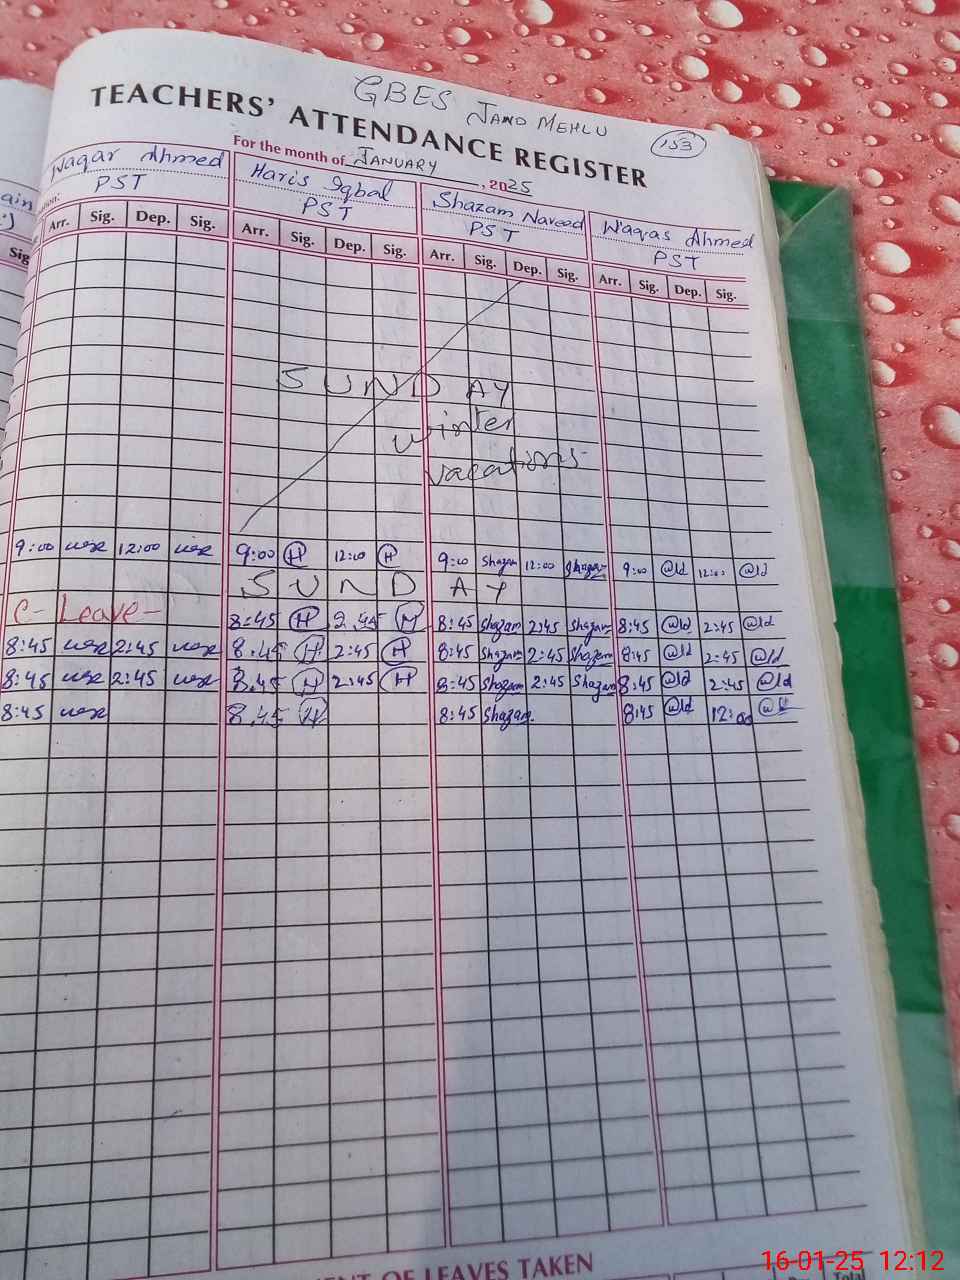 GBES JAND MEHLU
TEACHERS' ATTENDANCE REGISTER
153
For the month of JANUARY, 2025
Waqar Ahmed Haris Iqbal Shazam Naveed Waqas Ahmed
PST PST PST PST
Arr. Sig. Dep. Sig. Arr. Sig. Dep. Sig. Arr. Sig. Dep. Sig. Arr. Sig. Dep. Sig.
SUNDAY
winter
vacations
9:00 12:00 9:00 H 12:00 H 9:00 Shazam 12:00 Shazam 9:00 12:00
SUNDAY
C- Leave- 8:45 H 2.45 H 8:45 Shazam 2:45 Shazam 8:45 2:45
8:45 2:45 8.45 H 2:45 H 8:45 Shazam 2:45 Shazam 8:45 2:45
8:45 2:45 8.45 H 2:45 H 8:45 Shazam 2:45 Shazam 8:45 2:45
8:45 8.45 H 8:45 Shazam 8:45 12:00
OF LEAVES TAKEN
Total
16-01-25 12:12